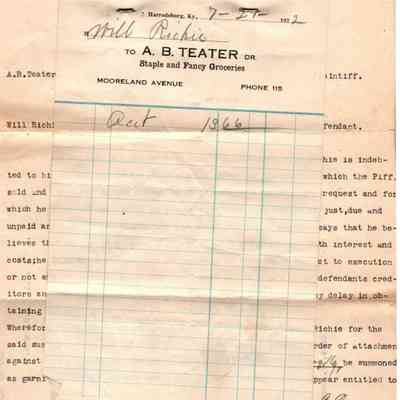 Harrodsburg, Ky., 7-21- 1922
Will Richie
TO A. B. TEATER DR.
Staple and Fancy Groceries
MOORELAND AVENUE PHONE 115
Acct 1366
A.B.Teater
intiff.
Will Richi
fendant.
hie is indeb-
ted to hi which the Piff.
sold and request and for
which he just,due and
unpaid an says that he be-
lieves th th interest and
costs;he ct to execution
or not e defendants cred-
itors an y delay in ob-
taining
Wherefor Richie for the
said sum rder of attachmen
against be summoned
as garni ppear entitled to